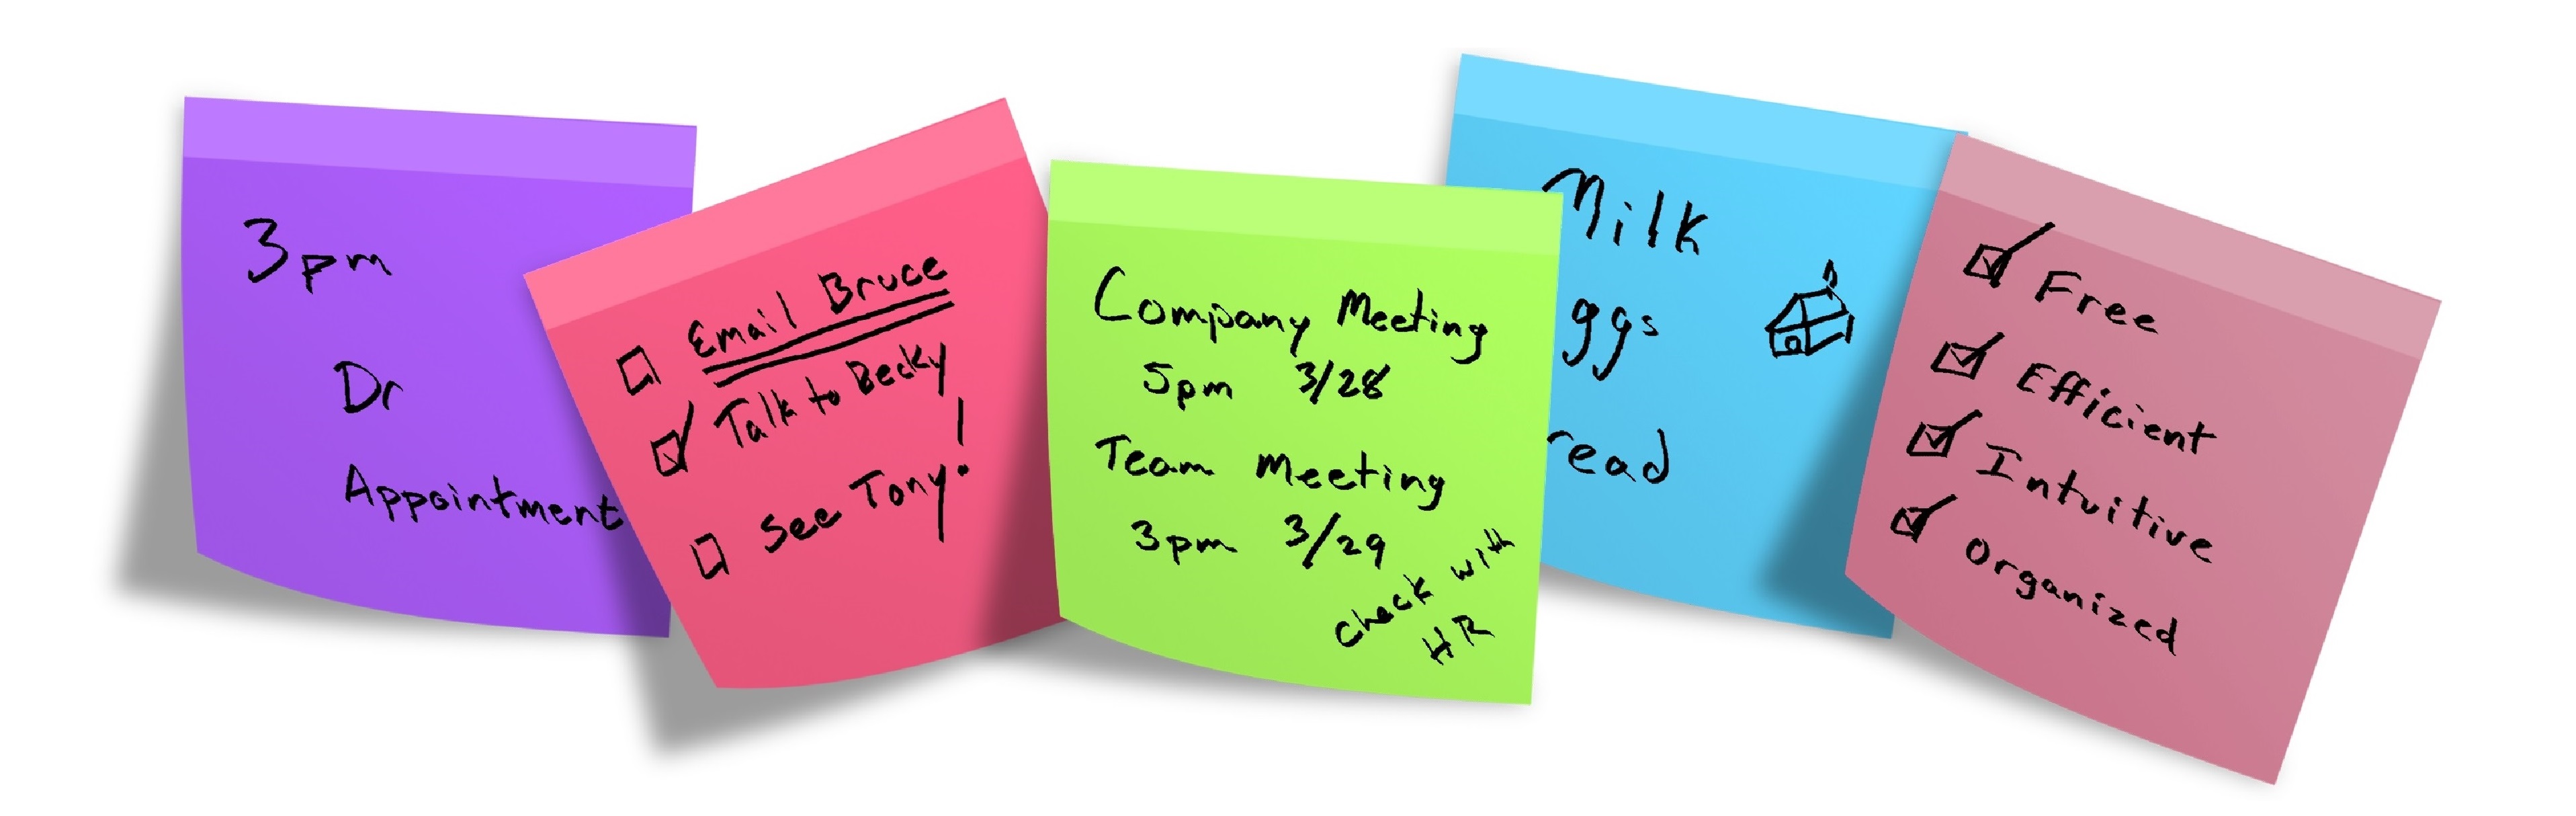 3pm
Dr
Appointment
Email Bruce
Talk to Becky
See Tony!
Company Meeting
5pm 3/28
Team Meeting
3pm 3/29
check with
HR
Milk
ggs
read
Free
Efficient
Intuitive
Organized